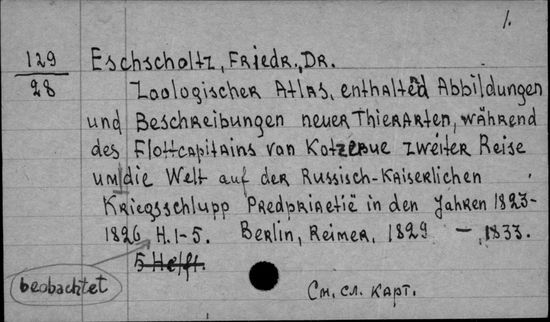 1.
129 Eschscholtz, Friedr., Dr.
28 Zoologischer Atlas, enthaltend Abbildungen
und Beschreibungen neuer Thierarten, während
des Flottcapitains von Kotzebue zweiter Reise
um die Welt auf der Russisch-Kaiserlichen
Kriegsschlupp Predpriaetië in den Jahren 1823-
1826 H. 1-5. Berlin, Reimer, 1829 - 1833.
5 Hefte.
beobachtet
См. сл. карт.